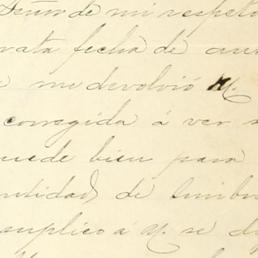 Señor de mi respeto
rata fecha de
me devolvió M.
corregida á ver
uede bien para
ntidad de timbr
suplico á M. se di